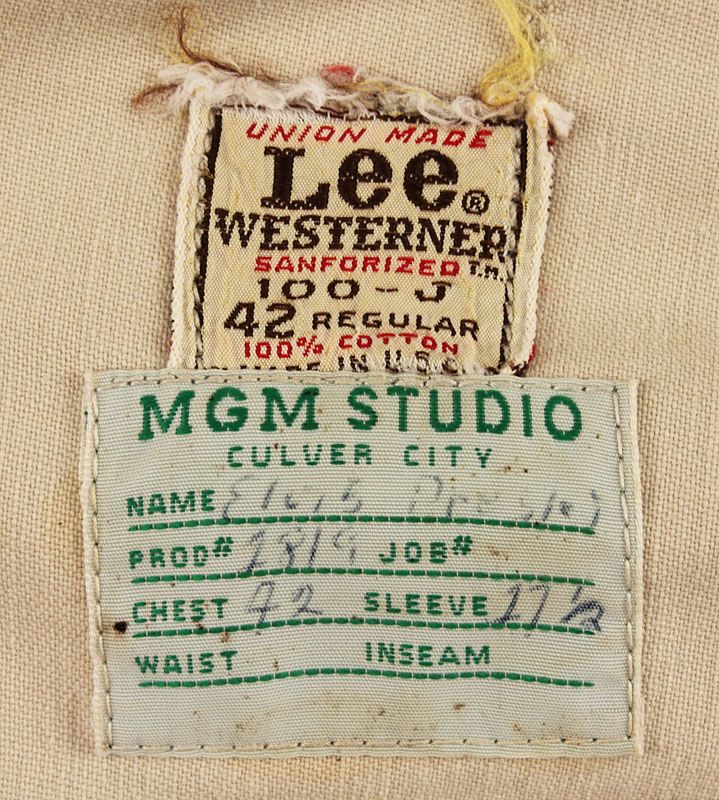 UNION MADE
Lee®
WESTERNER T.M.
SANFORIZED
100-J
42 REGULAR
100% COTTON
MADE IN U.S.
MGM STUDIO
CULVER CITY
NAME Elvis Presley
PROD# 1819 JOB#
CHEST 42 SLEEVE 17 1/2
WAIST INSEAM